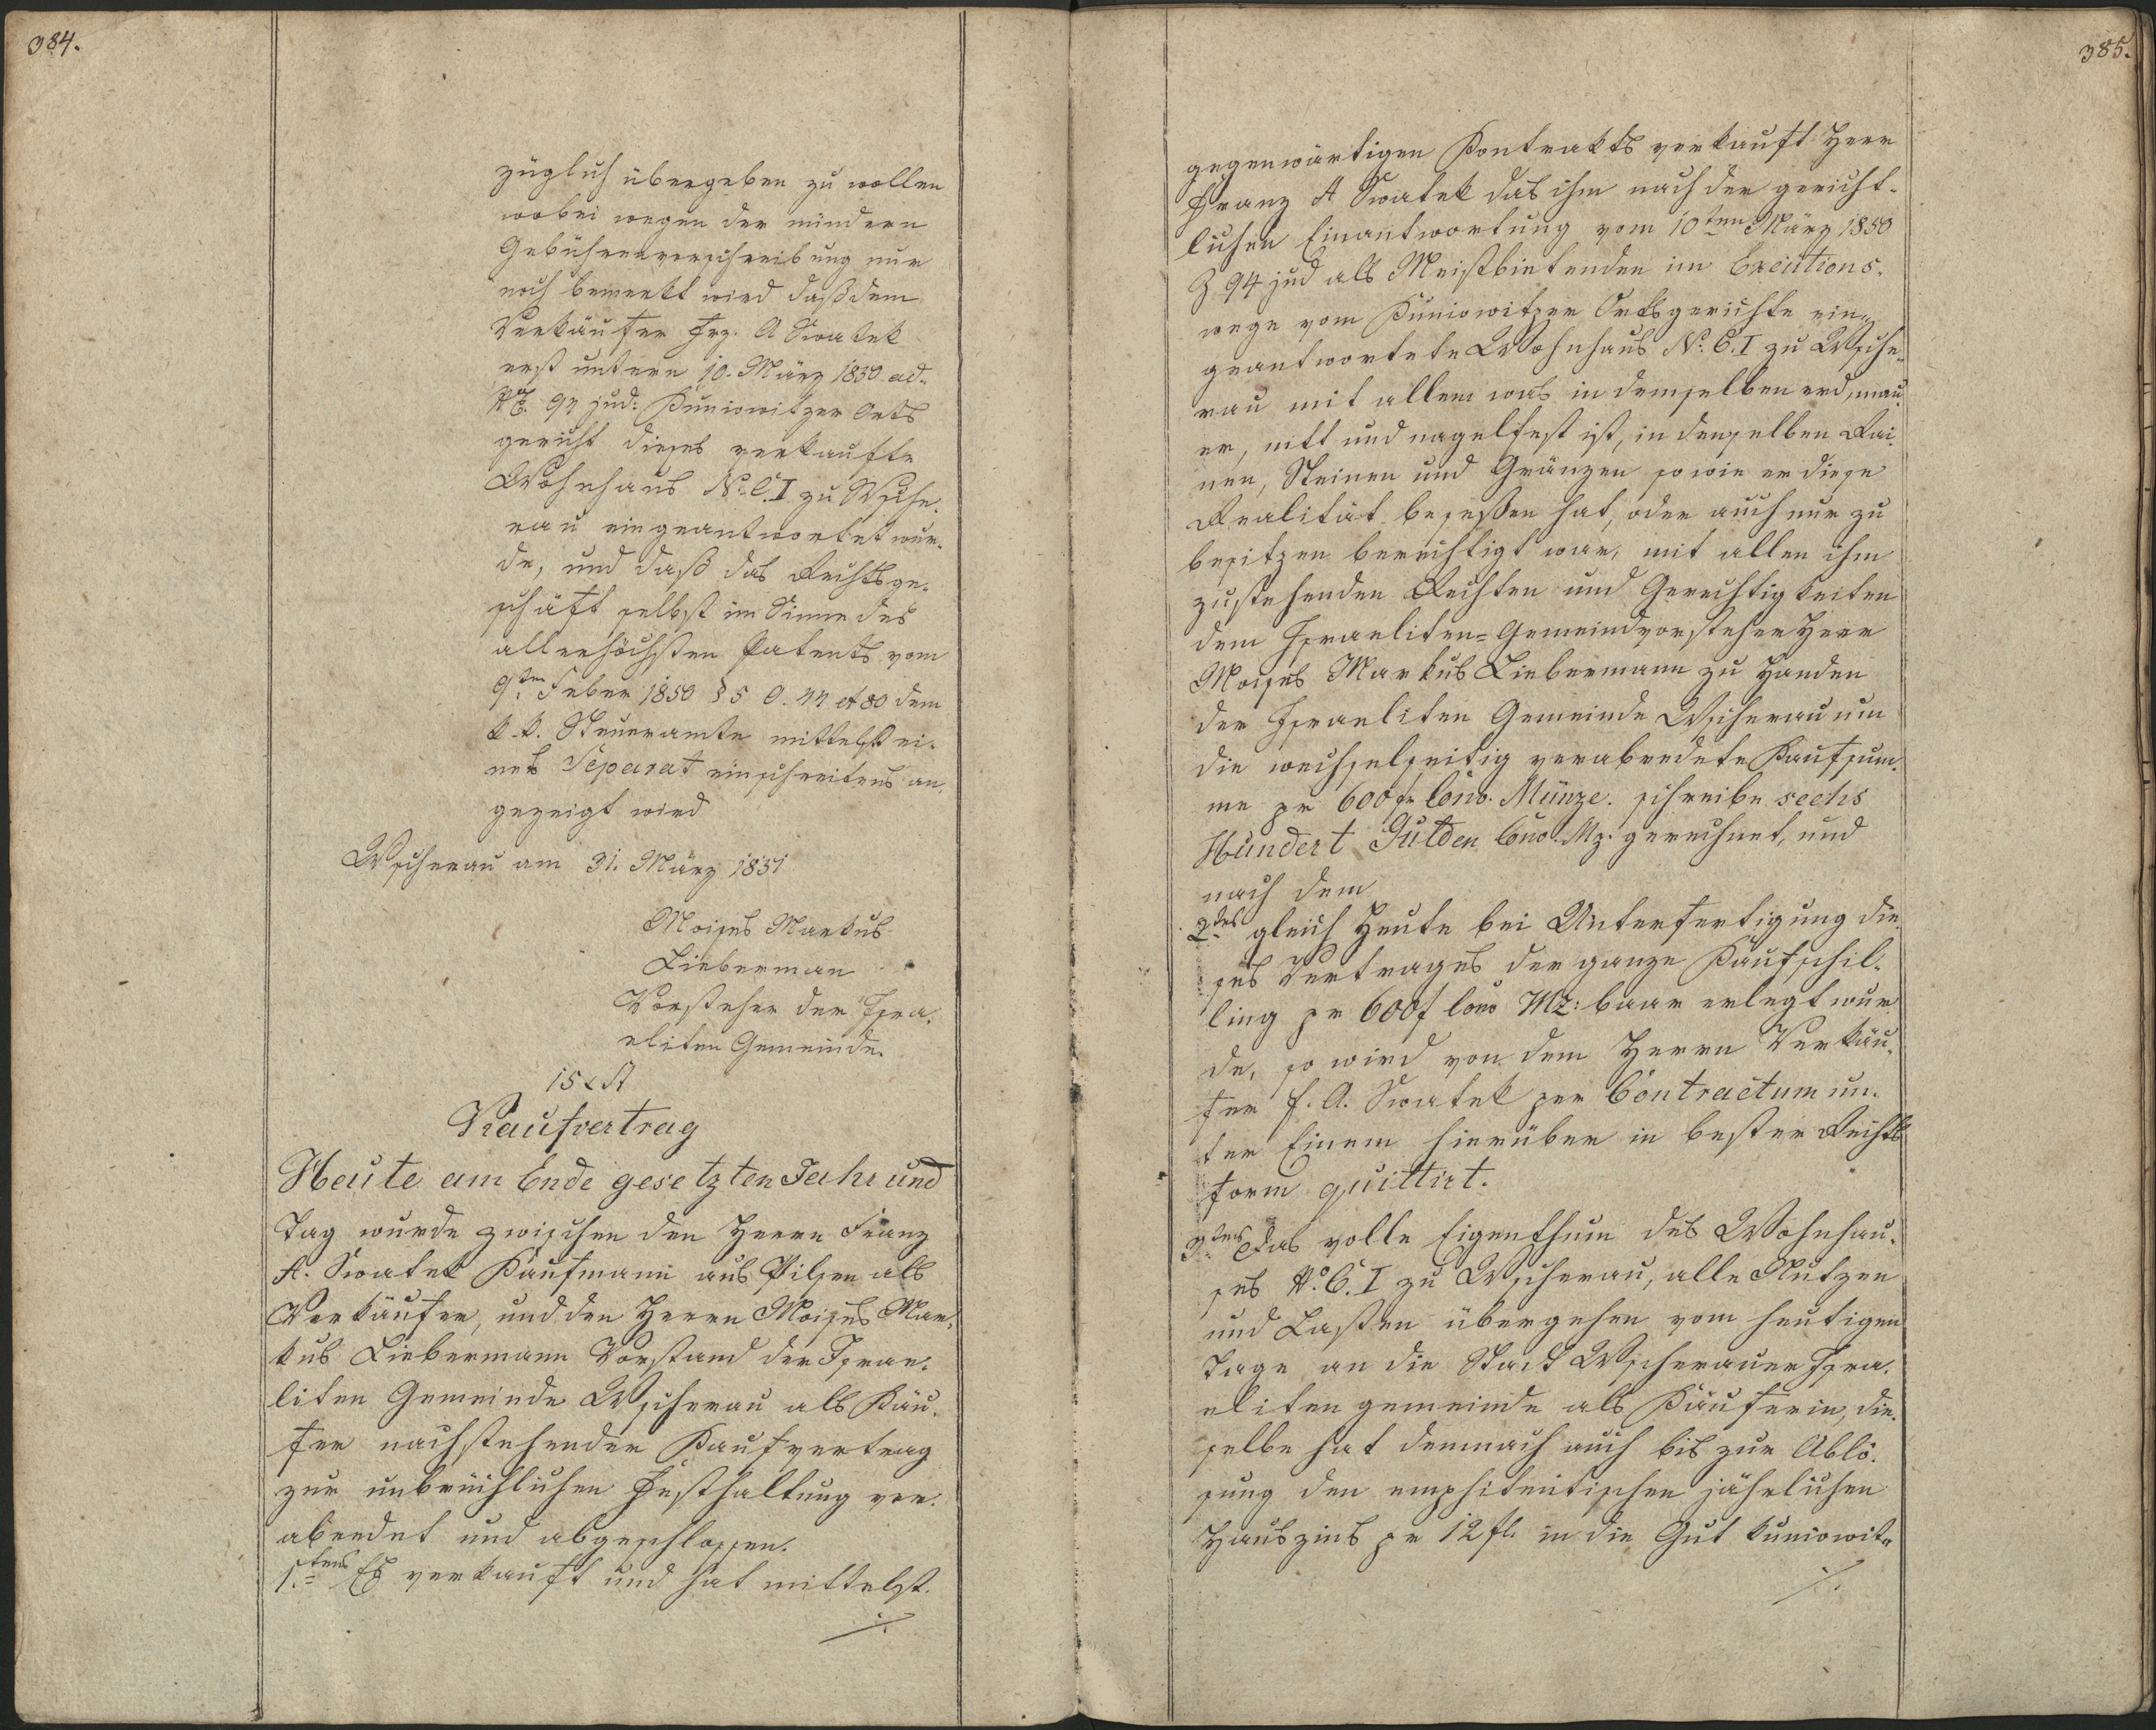 384.
züglich übergeben zu wollen
wobei wegen der mindern
Gebührenvorschreibung nur
noch bemerkt wird daß dem
Verkäufer Frz. A Swatek
erst unterm 10. März 1850 ad
94 jud: Kuniowitzer Orts
gericht dieses verkaufte
Wohnhaus No. C. I zu Wsche-
rau eingeantwortet wur-
de, und daß das Rechtsge-
schäft selbst im Sinne des
allerhöchsten Patents vom
9ten Feber 1850 § 5 et 80 dem
k. k. Steueramte mittelst ei-
nes Separat einschreitens an-
gezeigt wird
Wscherau am 31. März 1851
Moises Markus
Lieberman
Vorsteher der Isra-
eliten Gemeinde.
15 x St
Kaufvertrag
Heute am Ende gesetzten Jahr und
Tag wurde zwischen den Herrn Franz
A. Swatek Kaufmann aus Pilsen als
Verkäufer, und den Herrn Moises Mar-
kus Liebermann Vorstand der Israe-
liten Gemeinde Wscherau als Käu-
fer nachstehender Kaufvertrag
zur unbrüchlichen Festhaltung ver-
abredet und abgeschlossen.
1.tens Es verkauft und hat mittelst
./.
385.
gegenwärtigen Kontrakts verkauft Herr
Franz A Swatek das ihm nach der gericht-
lichen Einantwortung vom 10ten März 1850
Z 94 jud als Meistbietenden im Executions-
wege vom Kuniowitzer Ortsgerichte ein-
geantwortete Wohnhaus No. C. I zu Wsche-
rau mit allem was in demselben erd, mau-
er, nitt und nagelfest ist, in denselben Rai-
nen, Steinen und Gränzen so wie er diese
Realität besessen hat, oder auch nur zu
besitzen berechtigt war, mit allen ihm
zustehenden Rechten und Gerechtigkeiten
dem Israeliten=Gemeindvorsteher Herr
Moises Markus Liebermann zu Handen
der Israeliten Gemeinde Wscherau um
die wechselseitig verabredete Kaufsum-
me pr 600 fr Conv. Münze. schreibe sechs
Hundert Gulden Conv. Mz. gerechnet, und
nach dem
2tens gleich Heute bei Unterfertigung die-
ses Vertrages der ganze Kaufschil-
ling pr 600 f Conv Mz: baar erlegt wur
de, so wird von dem Herrn Verkäu-
fer F. A. Swatek per Contractum un-
ter Einem hierüber in bester Rechts
form quittirt.
3tens Das volle Eigenthum des Wohnhau-
ses No. C. I zu Wscherau, alle Nutzen
und Lasten übergehen vom heutigen
Tage an die Stadt Wscherauer Isra-
eliten gemeinde als Käuferin, die-
selbe hat demnach auch bis zur Ablö-
sung den emphiteutischen jährlichen
Hauszins pr 12 fl. in die Gut Kuniowit-
./.